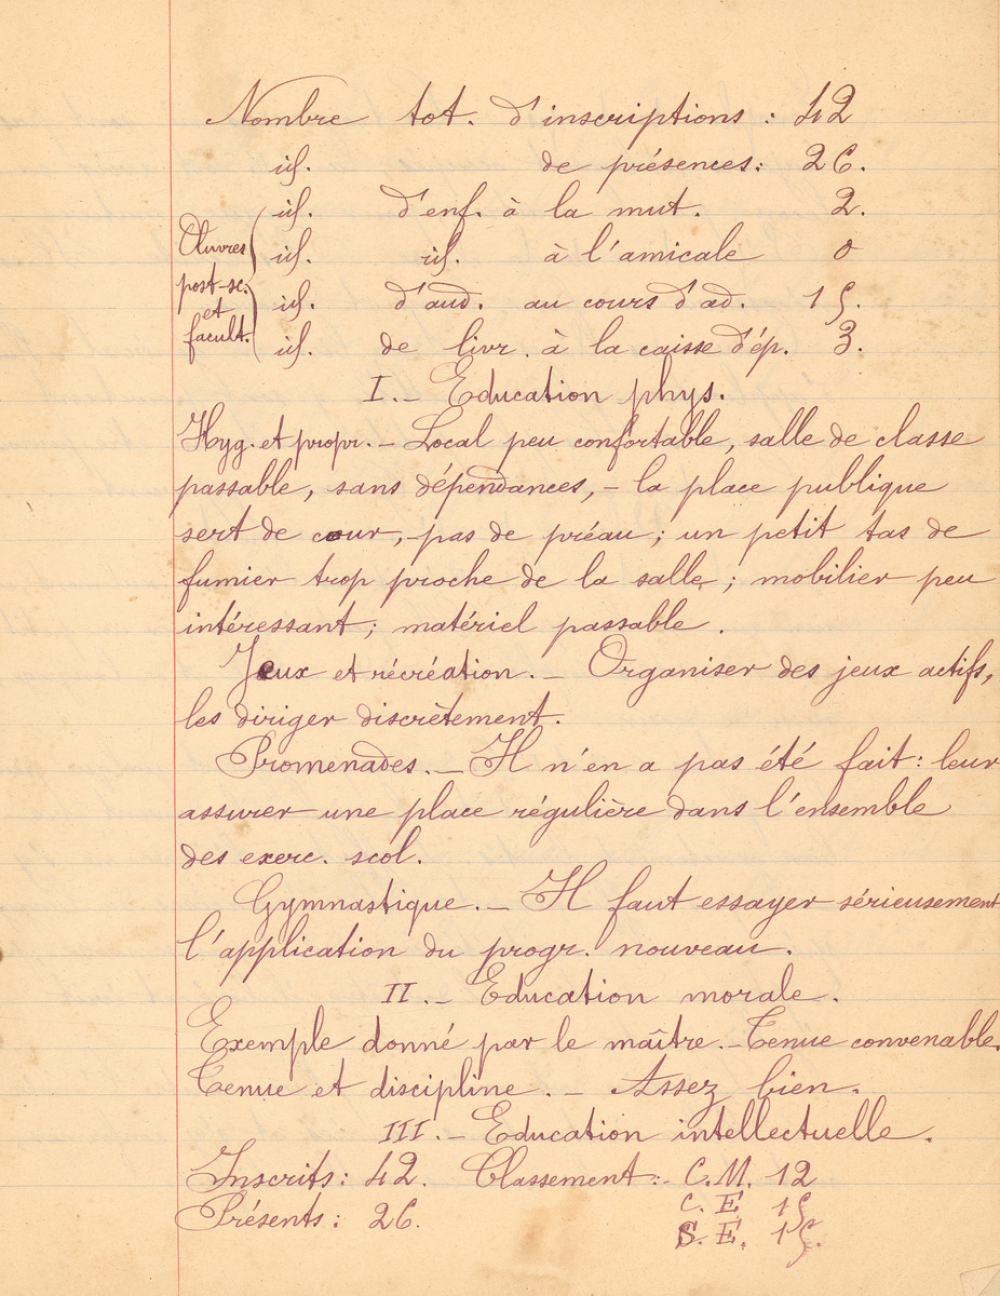 Nombre tot. d'inscriptions : 42
id. de présences : 26.
id. d'enf. à la mut. 2.
Œuvres id. id. à l'amicale 0
post-sc. et id. d'aud. au cours d'ad. 15.
facult. id. de livr. à la caisse d'ép. 3.
I. - Education phys.
Hyg. et propr. - Local peu confortable, salle de classe
passable, sans dépendances, - la place publique
sert de cour, pas de préau ; un petit tas de
fumier trop proche de la salle ; mobilier peu
intéressant ; matériel passable.
Jeux et récréation. - Organiser des jeux actifs,
les diriger discrètement.
Promenades. - Il n'en a pas été fait : leur
assurer une place régulière dans l'ensemble
des exerc. scol.
Gymnastique. - Il faut essayer sérieusement
l'application du progr. nouveau.
II. - Education morale.
Exemple donné par le maître. - Tenue convenable.
Tenue et discipline. - Assez bien.
III. - Education intellectuelle.
Inscrits : 42. Classement : - C. M. 12
Présents : 26. C. E 15
S. E. 15.